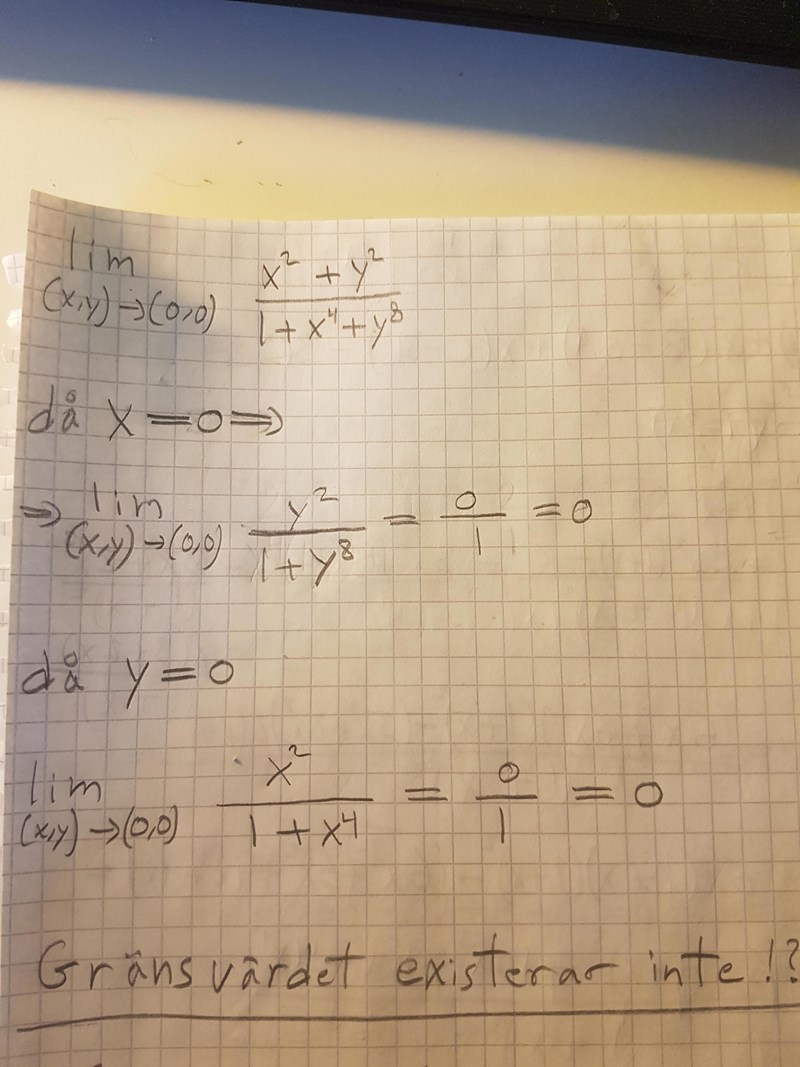 lim (x,y)→(0,0) x² + y² / 1 + x⁴ + y⁸
då x = 0 ⇒
⇒ lim (x,y)→(0,0) y² / 1 + y⁸ = 0 / 1 = 0
då y = 0
lim (x,y)→(0,0) x² / 1 + x⁴ = 0 / 1 = 0
Gränsvärdet existerar inte !?